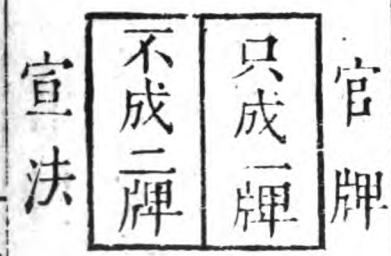 官牌
只成一牌
不成二牌
宣法